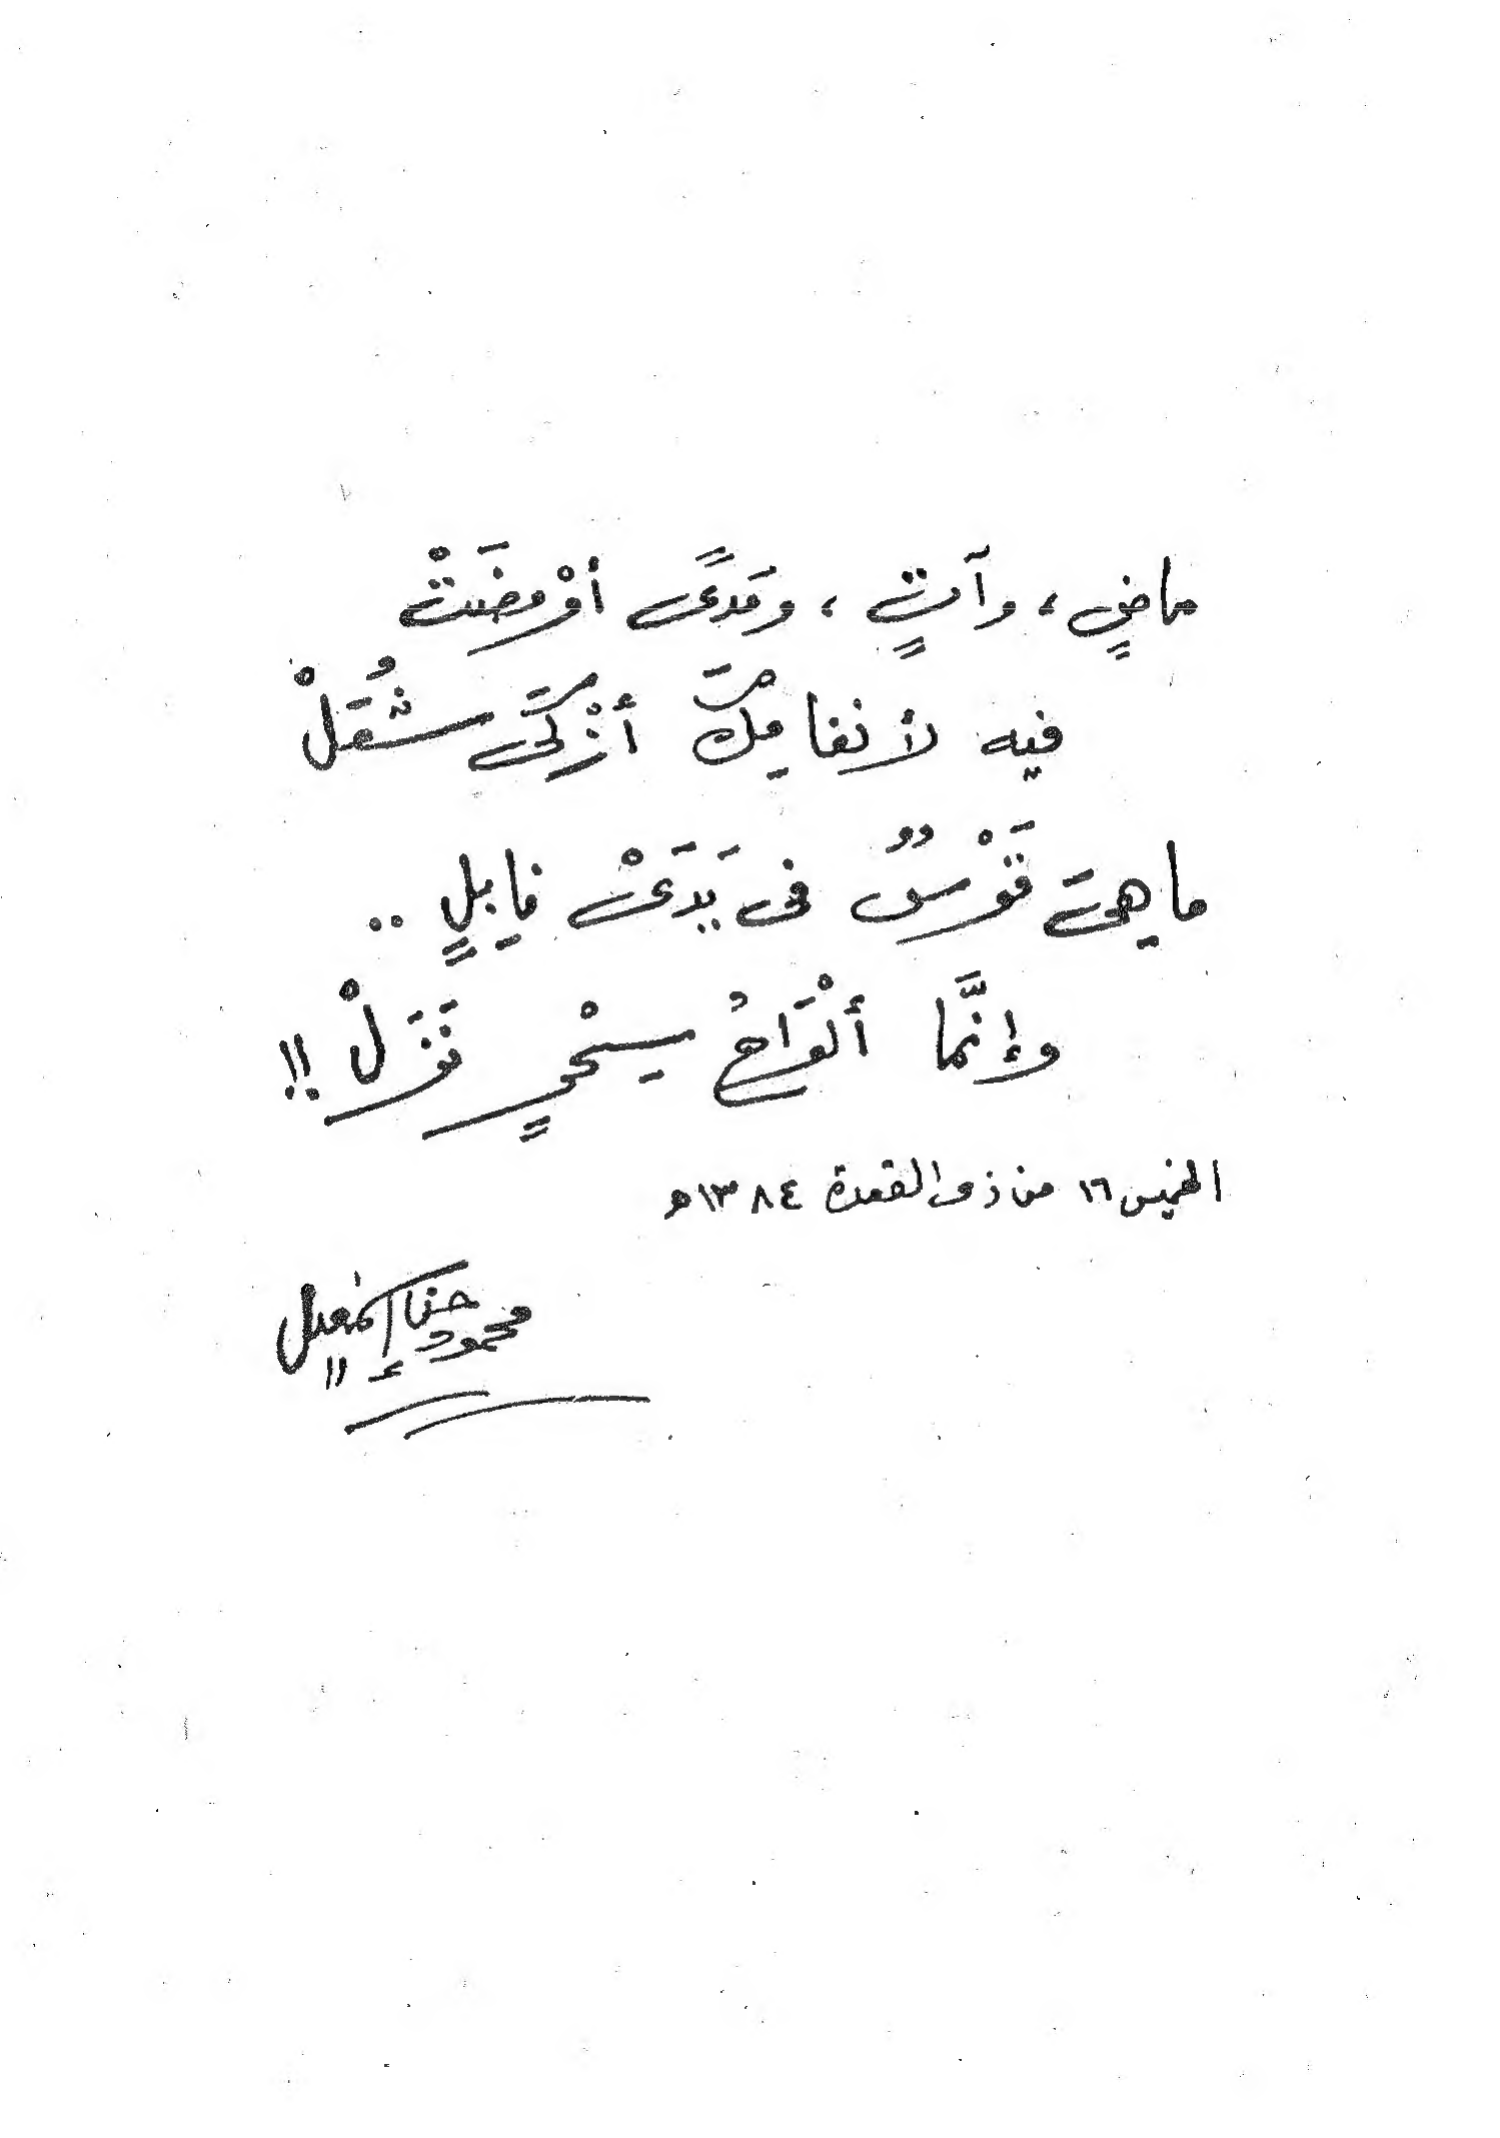 ماضٍ ، وآتٍ ، ومَدىً أوْمضَتْ
فيه لأنغامِكَ أزْكَى شُعَلْ
ما هِىَ قَوْسٌ فى يَدَىْ نابِلٍ ..
وإنَّما ألْوَاحُ سِحْرٍ نَزَلْ !!
الخميس ١٦ من ذى القعدة ١٣٨٤ هـ
محمود حسن إسمعيل